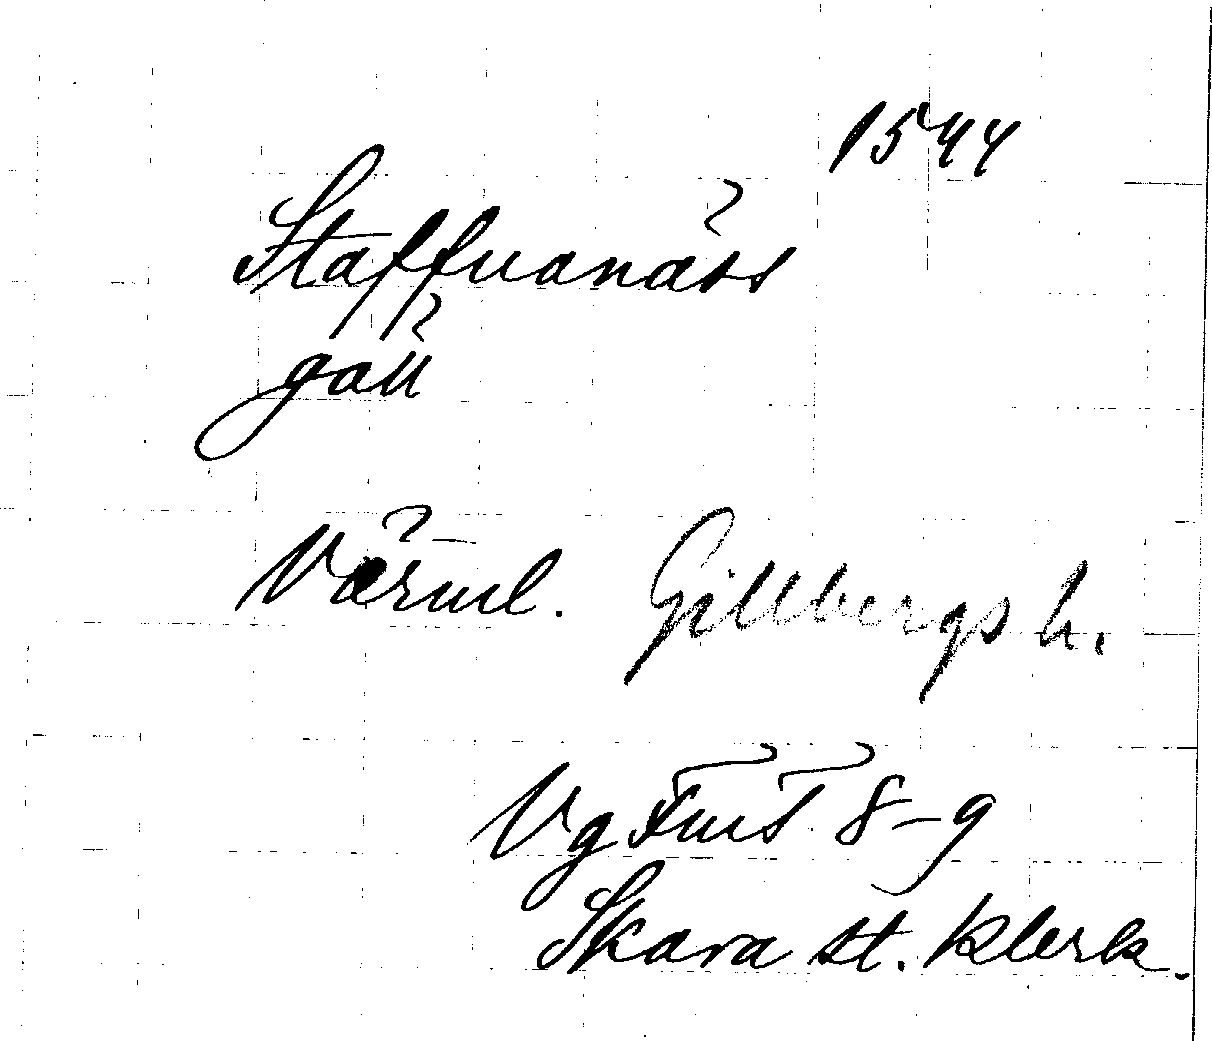 1544
Staffnanäss
gäll
Värml. Gillbergs h.
Vg FmT 8-9
Skara st. klerk.